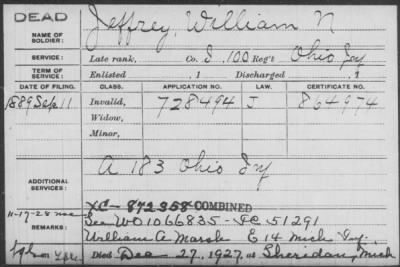 DEAD
NAME OF SOLDIER: Jeffrey, William N
SERVICE: Late rank, Co. I, 100 Reg't Ohio Inf
TERM OF SERVICE: Enlisted , 1 Discharged , 1
DATE OF FILING. CLASS. APPLICATION NO. LAW. CERTIFICATE NO.
1889 Sep 11 Invalid, 728494 J 864974
Widow,
Minor,
ADDITIONAL SERVICES: A 183 Ohio Inf
XC-872358 COMBINED
11-17-28
REMARKS: See WO 1066835 - 51291
William A. Marsh E 14 Mich Inf.
Died Dec 27, 1927, at Sheridan, Mich